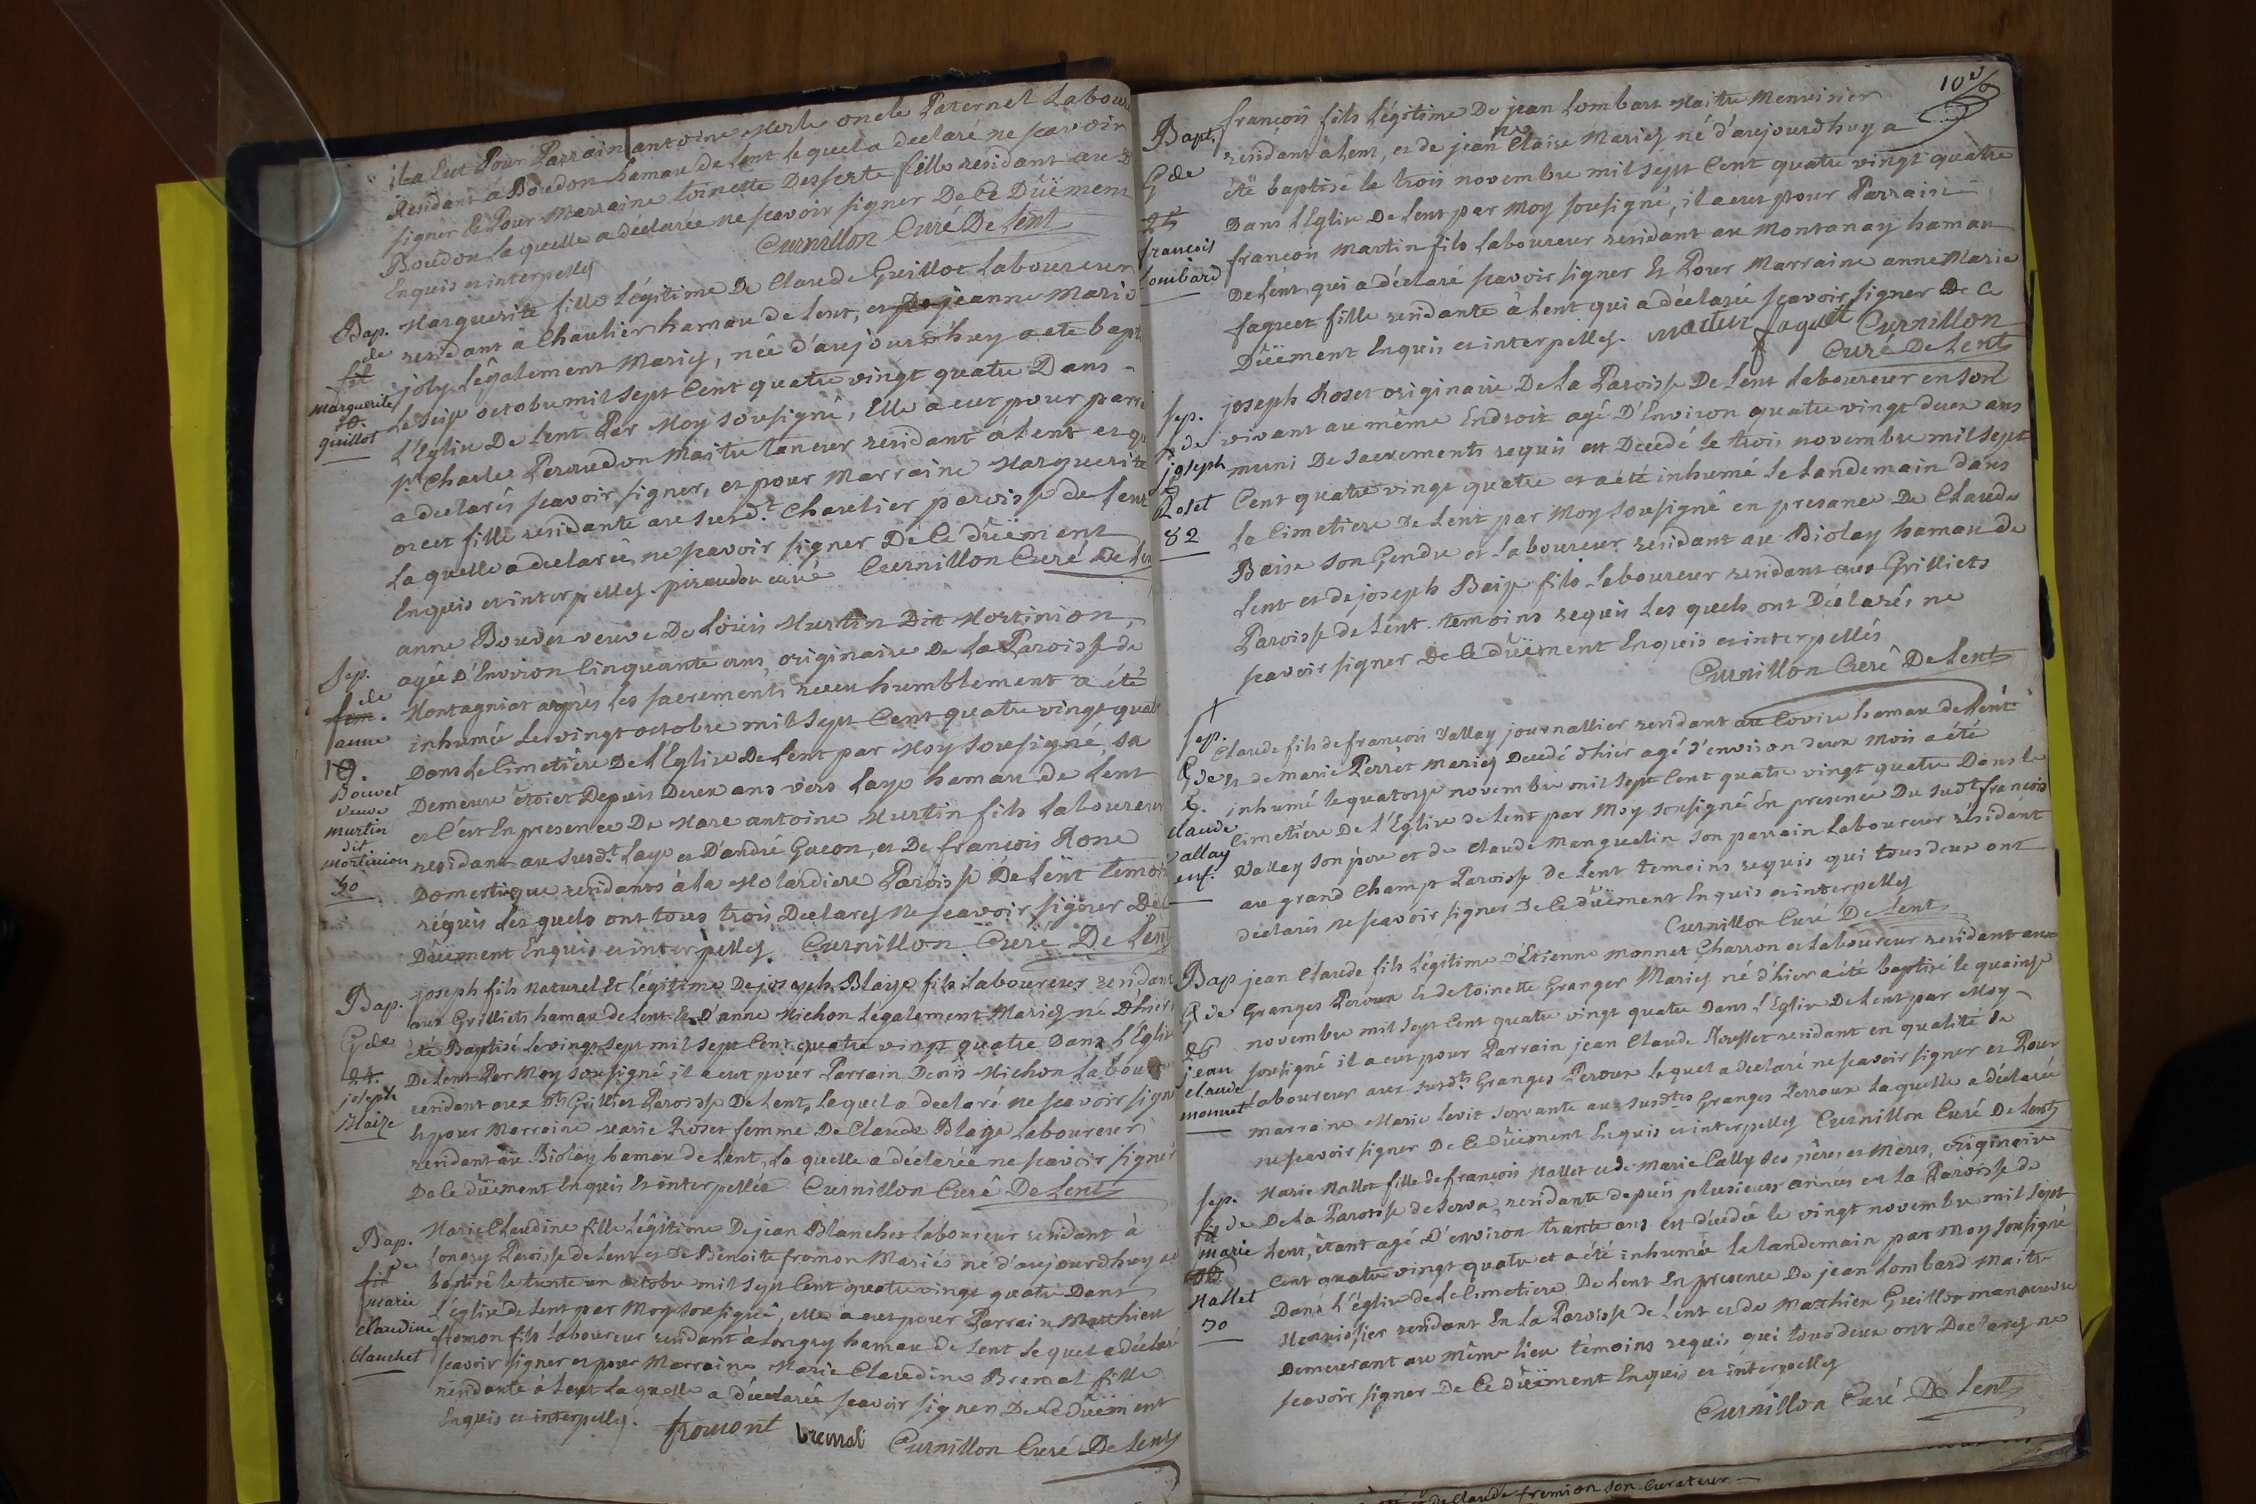 il a Eut Pour Parrain antoine Merle oncle Paternel Laboure
Résidant a Boudon hamau de Lent lequel a declaré ne scavoir
signer & Pour Marraine toinette Desserte fille residant au
Boudon La quelle a déclarée ne scavoir signer De Ce Düément
Enquis et interpelles Curnillon Curé De Lent
Bap.
de
fil
marguerite
guillot
Marguerite fille Légitime De Claude Guillot Laboureur
residant à Chaulier hamau de Lent, et De jeanne Marie
joly Légalement Mariés, née d'aujourd'huy a ete bapt
Le seize octobre mil sept Cent quatre vingt quatre Dans
L'Eglise De Lent Par Moy Sousigné, Elle a eut pour parr
sr. Charle Maitre taneur residant à Lent et qu
a declarés scavoir signer, et pour Marraine Marguerite
fille residante au susd.t Chaulier paroisse de Lent
La quelle a declarée ne scavoir signer De Ce düëment
Enquis et interpelles Curnillon Curé De Len
Sep.
de
fem.
anne
19.
Bouvet
veuve
murtin
dit
mortinion
50
anne Bouvet veuve De Loüis Murtin Dit Mortinion,
agée d'Environ Cinquante ans originaire De La Paroisse de
Montagniat après Les sacrements receu humblement a été
inhumée Le vingt octobre mil sept Cent quatre vingt quat
Dans Le Cimetière De L'Eglise De Lent par Moy Sousigné, sa
Demeure étoiet Depuis Deux ans vers Laye hamau de Lent
et C'est En presence De Marc antoine Murtin fils Laboureur
residant au susd.t Laye et D'andré Gacon, et De françois Rone
Domestique residants à la Molardiere Paroisse De Lent temoi
requis Les quels ont tous trois Declarés Ne scavoir signer De C
Düëment Enquis et interpelles. Curnillon Curé De Lent
Bap.
G de
24.
joseph
Blaize
joseph fils Naturel Et Légitime De joseph Blaize fils Laboureur residant
aux Grilliets hamau de Lent & D'anne Michon Légalement Mariés né d'hier
été Baptisé Le vingt sept mil sept Cent quatre vingt quatre Dans L'Eglise
De Lent Par Moy Sousigné il a eut pour Parrain Denis Michon Laboureur
residant aux dts Grilliet Paroisse De Lent, Lequel a declaré ne scavoir signe
& pour Marraine Marie Roset femme De Claude Blaize Laboureur
residant au Biolay hamau de Lent, La quelle a déclarée ne scavoir signer
De Ce düëment Enquis & interpellée Curnillon Curé De Lent
Bap.
de
fill
marie
claudine
blanchet
Marie Claudine fille Légitime De jean Blanchet Laboureur residant à
Longry Paroisse de Lent et De Benoite fromon Mariés né d'aujourd'huy et
baptisé le trente un octobre mil sept Cent quatre vingt quatre Dans
L'église de Lent par Moy Sousigné, elle a eut pour Parrain Matthieu
fromon fils Laboureur residant à Longry hamau de Lent Le quel a déclaré
scavoir signer et pour Marraine Marie Claudine Brevat fille
résidante à Lent La quelle a déclarée scavoir signer De Ce düëment
Enquis et interpelles. fromont Curnillon Curé De Lent
10e
Bapt.
G de
25
françois
Lombard
françois fils Légitime De jean Lombart Maitre Menuisier
residant à Lent, et de jeanne Claire Mariés né d'aujourd'huy a
été baptisé le trois novembre mil sept Cent quatre vingt quatre
Dans l'Eglise De Lent par Moy sousigné, il a eut pour Parrain
françois Martin fils Laboureur residant au Montanay hamau
De Lent qui a déclaré scavoir signer Et Pour Marraine anne Marie
faguet fille residante à Lent qui a déclarée scavoir signer De Ce
Düëment Enquis et interpelles. martin faguet Curnillon
Curé De Lent
Sep.
g de
joseph
Roset
82
joseph Roset originaire De La Paroisse De Lent Laboureur en son
vivant au même Endroit agé D'Environ quatre vingt deux ans
muni De sacrements requis est Decedé le trois novembre mil sept
Cent quatre vingt quatre et a été inhumé le Landemain dans
La Cimetiere De Lent par Moy sousigné en presance De Claude
Baise son Gendre et Laboureur residant au Biolay hamau de
Lent et de joseph Baize fils Laboureur residant aux Grilliets
Paroisse de Lent temoins requis Les quels ont Déclarés ne
scavoir signer De Ce düëment Enquis et interpellés
Curnillon Curé De Lent
Sep.
G de
claude
Vallay
enf.
Claude fils de françois Vallay journallier residant au Covire hamau de Lent
& de marie Perret Mariés Decedé d'hier agé d'environ deux Mois a été
inhumé le quatorze novembre mil sept Cent quatre vingt quatre Dans le
Cimetière De l'Eglise de Lent par Moy sousigné En presence Du sudt françois
Vallay son père et de Claude Manguelin son parrain Laboureur résidant
au grand Champt Paroisse de Lent temoins requis qui tous deux ont
déclarés ne scavoir signer De Ce düëment Enquis et interpelles
Curnillon Curé De Lent
Bap
G de
26
jean
claude
monnet
jean Claude fils Légitime d'Etienne Monnet Charron et Laboureur residant aux
Granges Peroux & de toinette Granger Mariés né d'hier a été baptisé le quainze
novembre mil sept Cent quatre vingt quatre Dans l'Eglise De Lent par Moy
sousigné il a eut pour Parrain jean Claude Rousset residant en qualité de
Laboureur aux susdts Granges Peroux Lequel a declaré ne scavoir signer et Pour
marraine Marie Levit servante aux susdtes Granges Perroux La quelle a déclarée
ne scavoir signer De Ce düëment Enquis et interpelles Curnillon Curé De Lent
Sep.
de
fil
marie
Mallet
30
Marie Mallet fille de françois Mallet et de Marie Cally ses pères et Mères, originaire
De La Paroisse de Serva, residante depuis plusieurs années en la Paroisse de
Lent, étant agé D'environ trante ans est décédée le vingt novembre mil sept
Cent quatre vingt quatre et a été inhumée le landemain par Moy sousigné
Dans L'église de Le Cimetiere De Lent En presence De jean Lombard Maitre
Menuissier residant En La Paroisse de Lent et de Matthieu Guillot manoeuvre
Demeurant au Même lieu témoins requis qui tous deux ont Declarés ne
scavoir signer De Ce düëment Enquis et interpelles
Curnillon Curé De Lent
de Claude fremion son Curateur